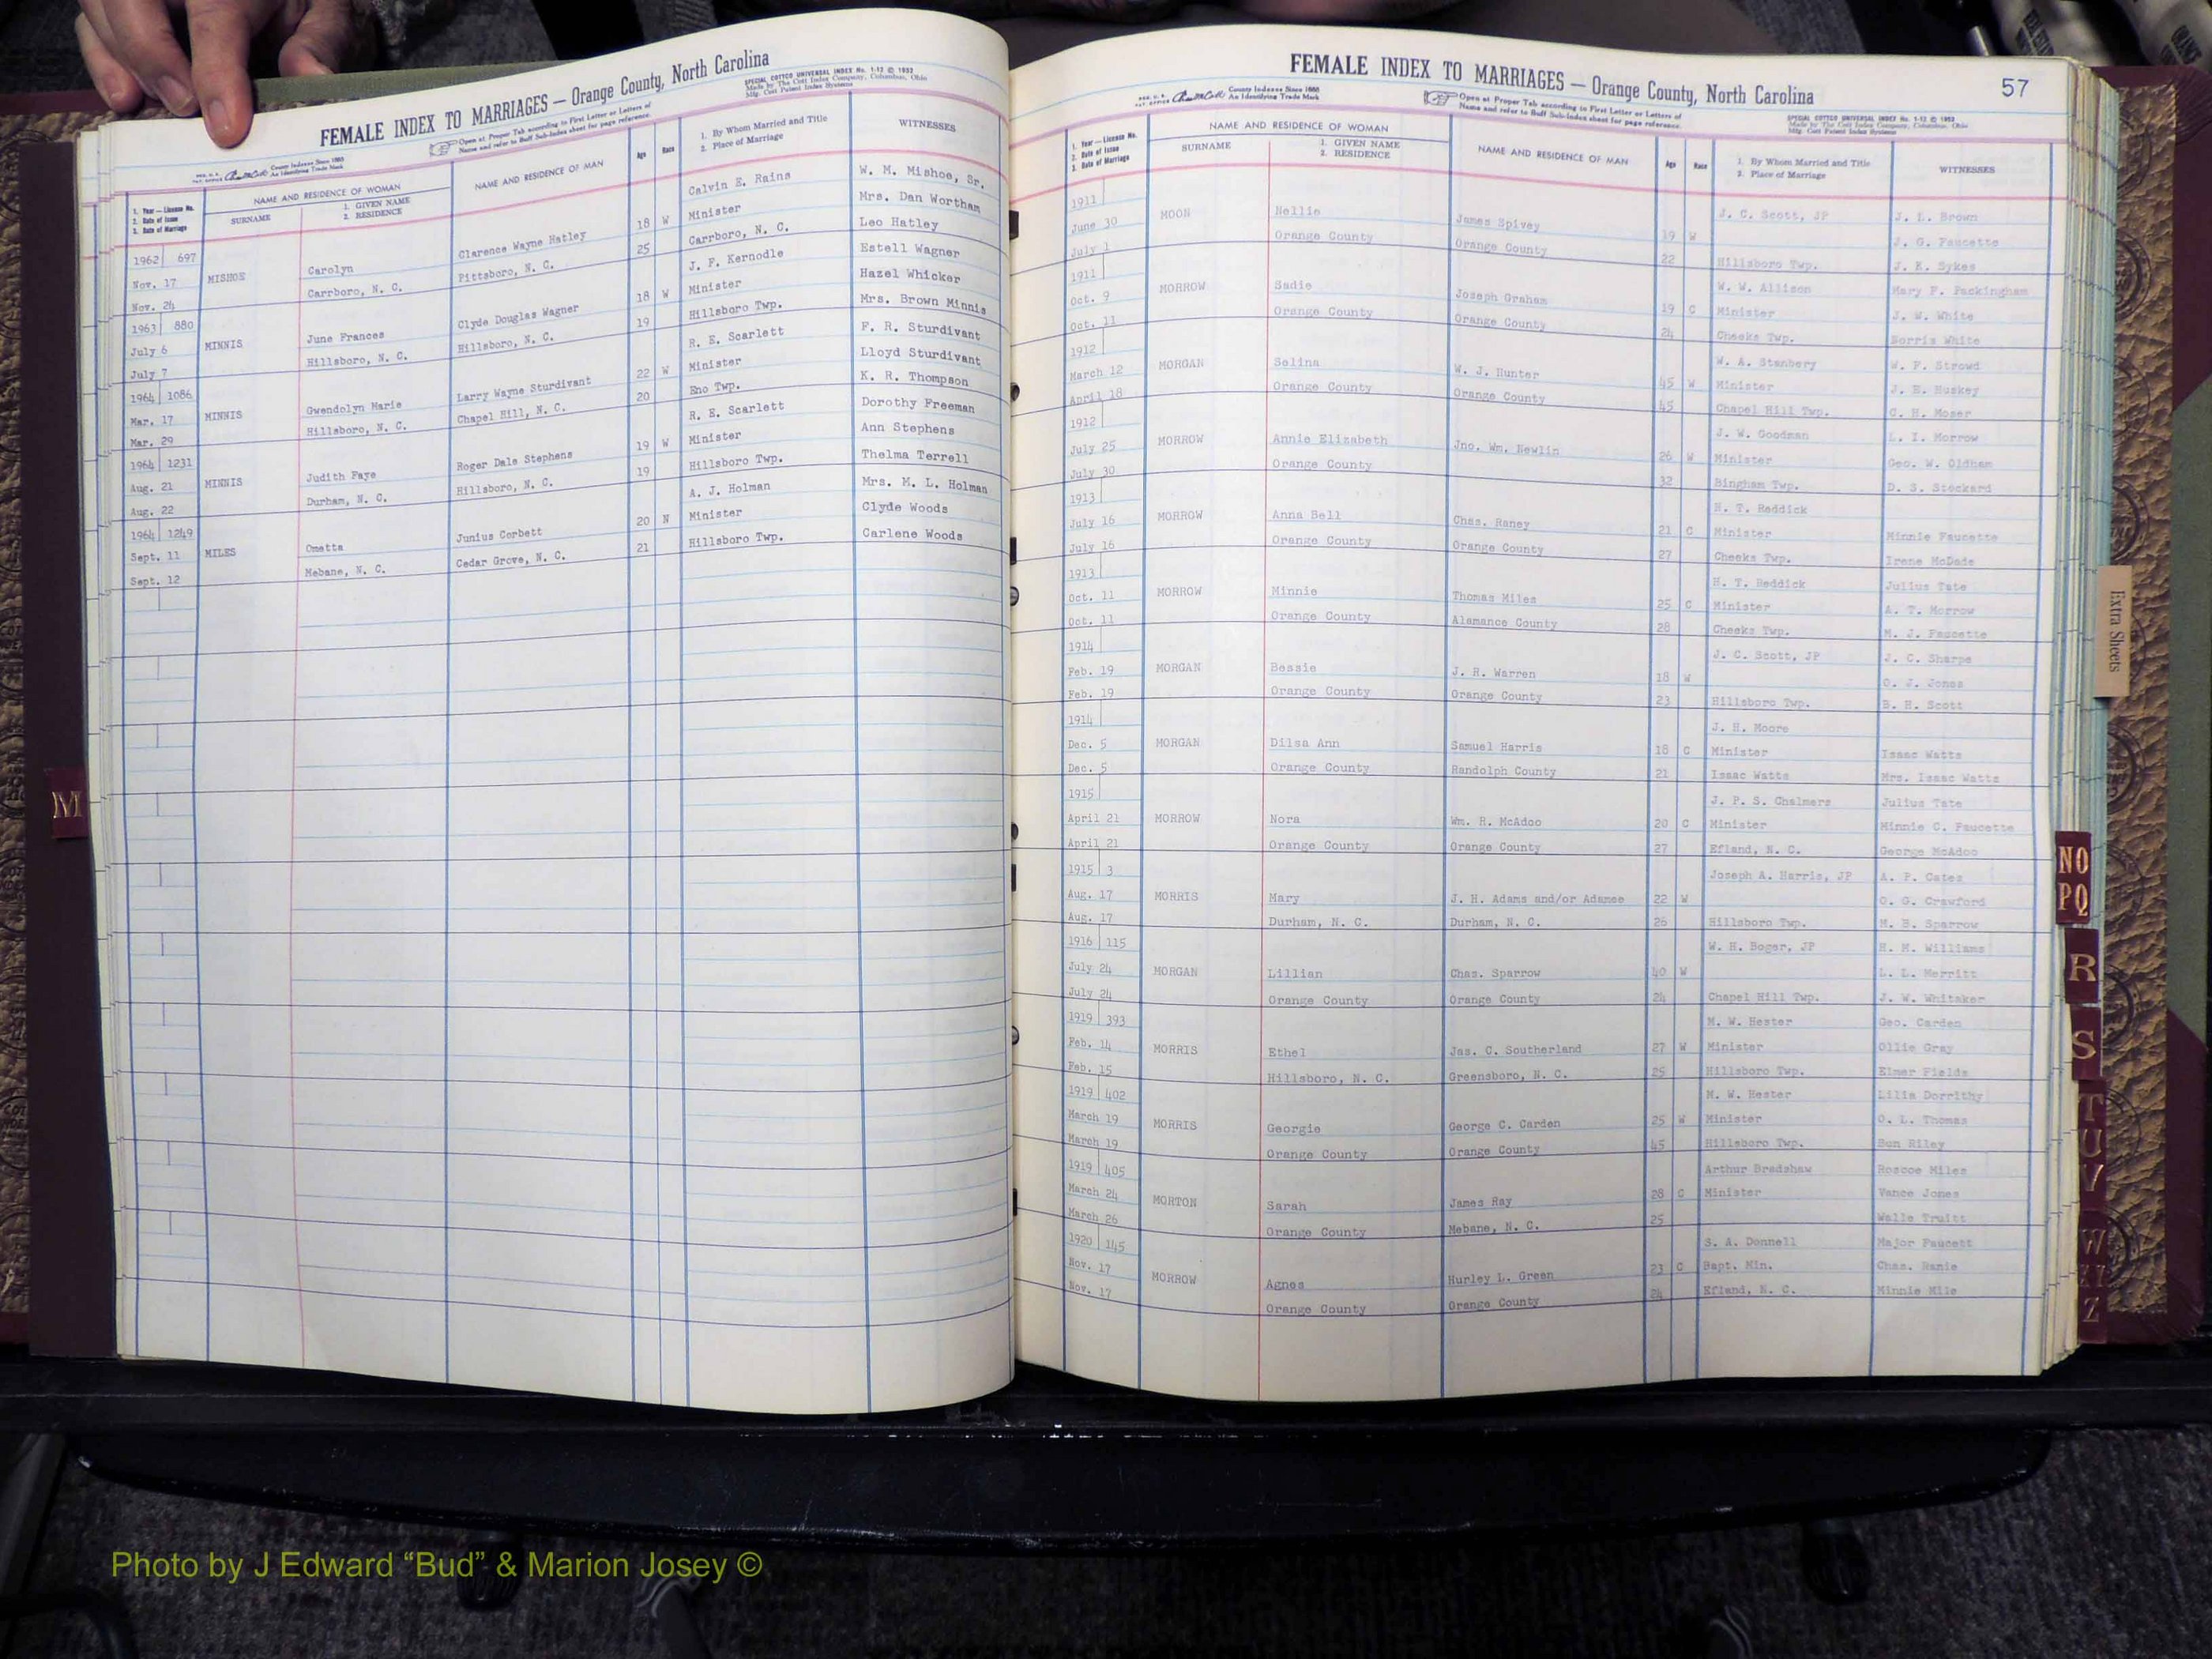 FEMALE INDEX TO MARRIAGES — Orange County, North Carolina
Open at Proper Tab according to First Letter or Letters of
Name and refer to Buff Sub-Index sheet for page reference.
SPECIAL COTTCO UNIVERSAL INDEX No. 1-12 © 1952
Made by The Cott Index Company, Columbus, Ohio
Mfg. Cott Patent Index Systems
County Indexes Since 1888
An Identifying Trade Mark
1. Year — License No.
2. Date of Issue
3. Date of Marriage
NAME AND RESIDENCE OF WOMAN
SURNAME
1. GIVEN NAME
2. RESIDENCE
NAME AND RESIDENCE OF MAN
Age
Race
1. By Whom Married and Title
2. Place of Marriage
WITNESSES
1962 697 Calvin E. Rains W. M. Mishoe, Sr.
Nov. 17 MISHOE Carolyn Clarence Wayne Hatley 18 W Minister Mrs. Dan Wortham
Nov. 24 Carrboro, N. C. Pittsboro, N. C. 25 Carrboro, N. C. Leo Hatley
1963 880 J. F. Kernodle Estell Wagner
July 6 MINNIS June Frances Clyde Douglas Wagner 18 W Minister Hazel Whicker
July 7 Hillsboro, N. C. Hillsboro, N. C. 19 Hillsboro Twp. Mrs. Brown Minnis
1964 1086 R. E. Scarlett F. R. Sturdivant
Mar. 17 MINNIS Gwendolyn Marie Larry Wayne Sturdivant 22 W Minister Lloyd Sturdivant
Mar. 29 Hillsboro, N. C. Chapel Hill, N. C. 20 Eno Twp. K. R. Thompson
1964 1231 R. E. Scarlett Dorothy Freeman
Aug. 21 MINNIS Judith Faye Roger Dale Stephens 19 W Minister Ann Stephens
Aug. 22 Durham, N. C. Hillsboro, N. C. 19 Hillsboro Twp. Thelma Terrell
1964 1249 A. J. Holman Mrs. M. L. Holman
Sept. 11 MILES Ometta Junius Corbett 20 N Minister Clyde Woods
Sept. 12 Mebane, N. C. Cedar Grove, N. C. 21 Hillsboro Twp. Carlene Woods
M
FEMALE INDEX TO MARRIAGES — Orange County, North Carolina
57
County Indexes Since 1888
An Identifying Trade Mark
Open at Proper Tab according to First Letter or Letters of
Name and refer to Buff Sub-Index sheet for page reference.
SPECIAL COTTCO UNIVERSAL INDEX No. 1-12 © 1952
Made by The Cott Index Company, Columbus, Ohio
Mfg. Cott Patent Index Systems
1. Year — License No.
2. Date of Issue
3. Date of Marriage
NAME AND RESIDENCE OF WOMAN
SURNAME
1. GIVEN NAME
2. RESIDENCE
NAME AND RESIDENCE OF MAN
Age
Race
1. By Whom Married and Title
2. Place of Marriage
WITNESSES
1911 J. C. Scott, JP J. L. Brown
June 30 MOON Nellie James Spivey 19 W J. G. Faucette
July 1 Orange County Orange County 22 Hillsboro Twp. J. K. Sykes
1911 W. W. Allison Mary F. Packingham
Oct. 9 MORROW Sadie Joseph Graham 19 C Minister J. W. White
Oct. 11 Orange County Orange County 24 Cheeks Twp. Dorris White
1912 W. A. Stanbery W. F. Strowd
March 12 MORGAN Selina W. J. Hunter 45 W Minister J. E. Huskey
April 18 Orange County Orange County 45 Chapel Hill Twp. C. H. Moser
1912 J. W. Goodman L. I. Morrow
July 25 MORROW Annie Elizabeth Jno. Wm. Newlin 26 W Minister Geo. W. Oldham
July 30 Orange County 32 Bingham Twp. D. S. Stockard
1913 H. T. Reddick
July 16 MORROW Anna Bell Chas. Raney 21 C Minister Minnie Faucette
July 16 Orange County Orange County 27 Cheeks Twp. Irene McDade
1913 H. T. Reddick Julius Tate
Oct. 11 MORROW Minnie Thomas Miles 25 C Minister A. T. Morrow
Oct. 11 Orange County Alamance County 28 Cheeks Twp. M. J. Faucette
1914 J. C. Scott, JP J. C. Sharpe
Feb. 19 MORGAN Bessie J. H. Warren 18 W O. J. Jones
Feb. 19 Orange County Orange County 23 Hillsboro Twp. B. H. Scott
1914 J. H. Moore
Dec. 5 MORGAN Dilsa Ann Samuel Harris 18 C Minister Isaac Watts
Dec. 5 Orange County Randolph County 21 Isaac Watts Mrs. Isaac Watts
1915 J. P. S. Chalmers Julius Tate
April 21 MORROW Nora Wm. R. McAdoo 20 C Minister Minnie C. Faucette
April 21 Orange County Orange County 27 Efland, N. C. George McAdoo
1915 3 Joseph A. Harris, JP A. P. Cates
Aug. 17 MORRIS Mary J. H. Adams and/or Adamee 22 W O. G. Crawford
Aug. 17 Durham, N. C. Durham, N. C. 26 Hillsboro Twp. M. B. Sparrow
1916 115 W. H. Boger, JP H. M. Williams
July 24 MORGAN Lillian Chas. Sparrow 40 W L. L. Merritt
July 24 Orange County Orange County 24 Chapel Hill Twp. J. W. Whitaker
1919 393 M. W. Hester Geo. Carden
Feb. 14 MORRIS Ethel Jas. C. Southerland 27 W Minister Ollie Gray
Feb. 15 Hillsboro, N. C. Greensboro, N. C. 25 Hillsboro Twp. Elmer Fields
1919 402 M. W. Hester Lilla Dorrithy
March 19 MORRIS Georgie George C. Carden 25 W Minister O. L. Thomas
March 19 Orange County Orange County 45 Hillsboro Twp. Bun Riley
1919 405 Arthur Bradshaw Roscoe Miles
March 24 MORTON Sarah James Ray 28 C Minister Vance Jones
March 26 Orange County Mebane, N. C. 25 Walle Truitt
1920 145 S. A. Donnell Major Faucett
Nov. 17 MORROW Agnes Hurley L. Green 23 C Bapt. Min. Chas. Ranie
Nov. 17 Orange County Orange County 24 Efland, N. C. Minnie Mile
Extra Sheets
NO
PQ
R
S
T
U
V
W
Z
Photo by J Edward “Bud” & Marion Josey ©